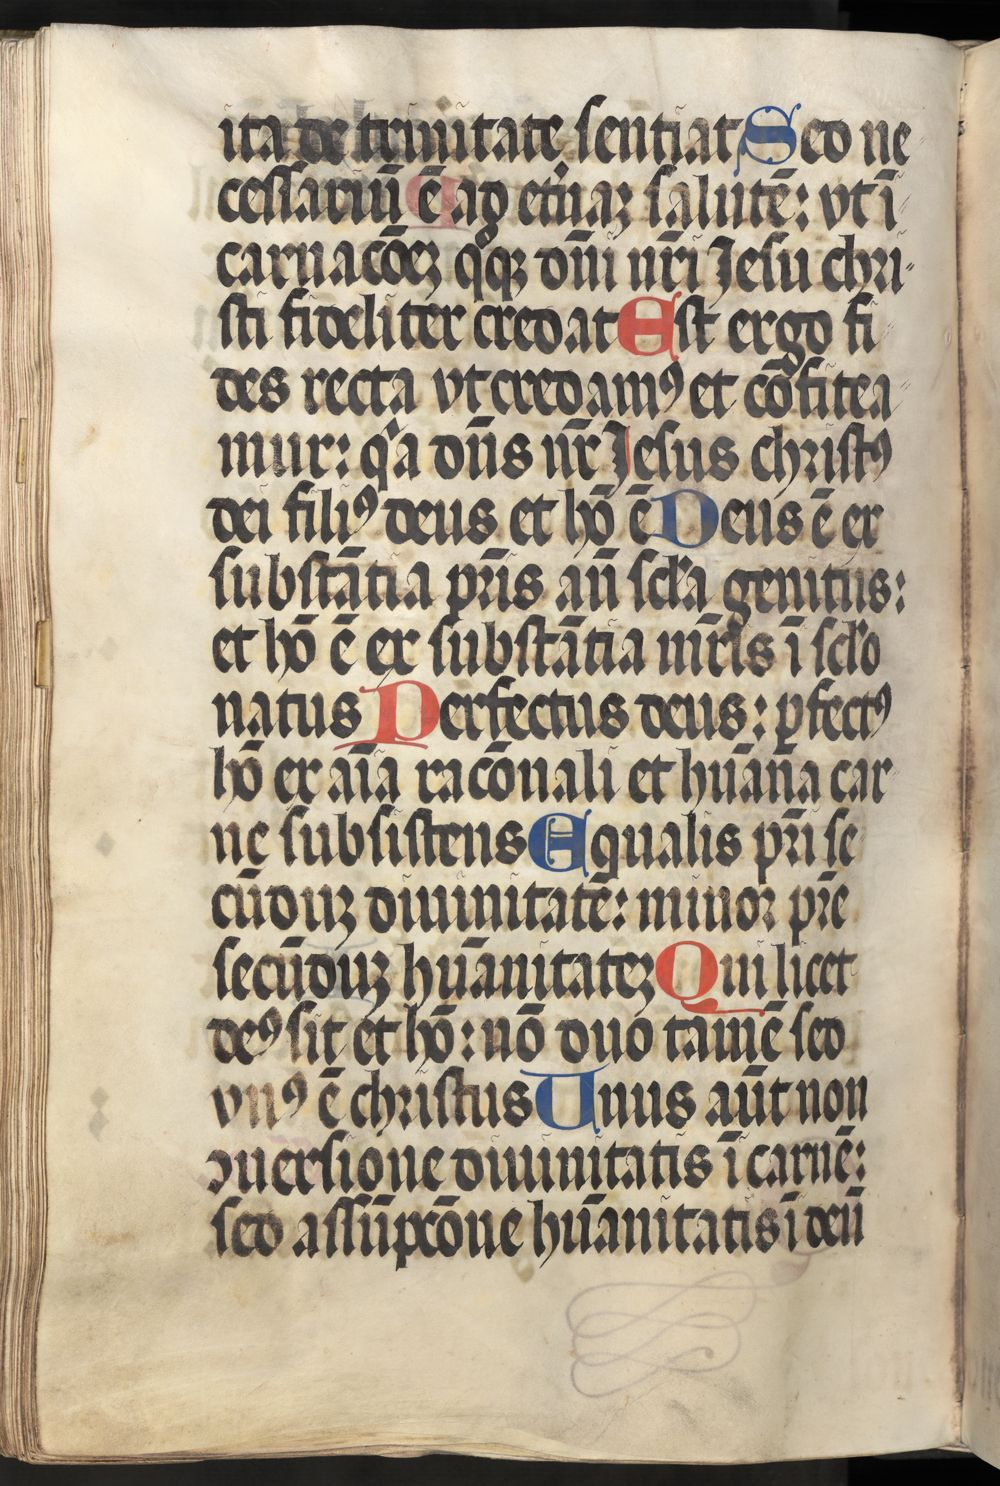 ita de trinitate sentiat Sed ne
cessariū ē ad etnaꝫ salutē: vt ī
carnacōeꝫ qͦqꝫ dn̄i nr̄i Jesu chri
sti fideliter credat Est ergo fi
des recta vt credamꝰ et cōfitea
mur: qͥa dn̄s nr̄ Jesus christꝰ
dei filiꝰ deus et hō ē Deus ē ex
substātia pr̄is an̄ scl̓a genitus:
et hō ē ex substātia mr̄is ī scl̓o
natus Perfectus deus: ꝑfectꝰ
hō ex aīa racōnali et hūana car
ne subsistens Equalis pr̄i se
cūduꝫ diuinitatē: minor pr̄e
secūduꝫ hūanitateꝫ Qui licet
deꝰ sit et hō: nō duo tamē sed
vnꝰ ē christus Unus aūt non
ꝯuersione diuinitatis ī carnē:
sed assūpcōne hūanitatis ī deū